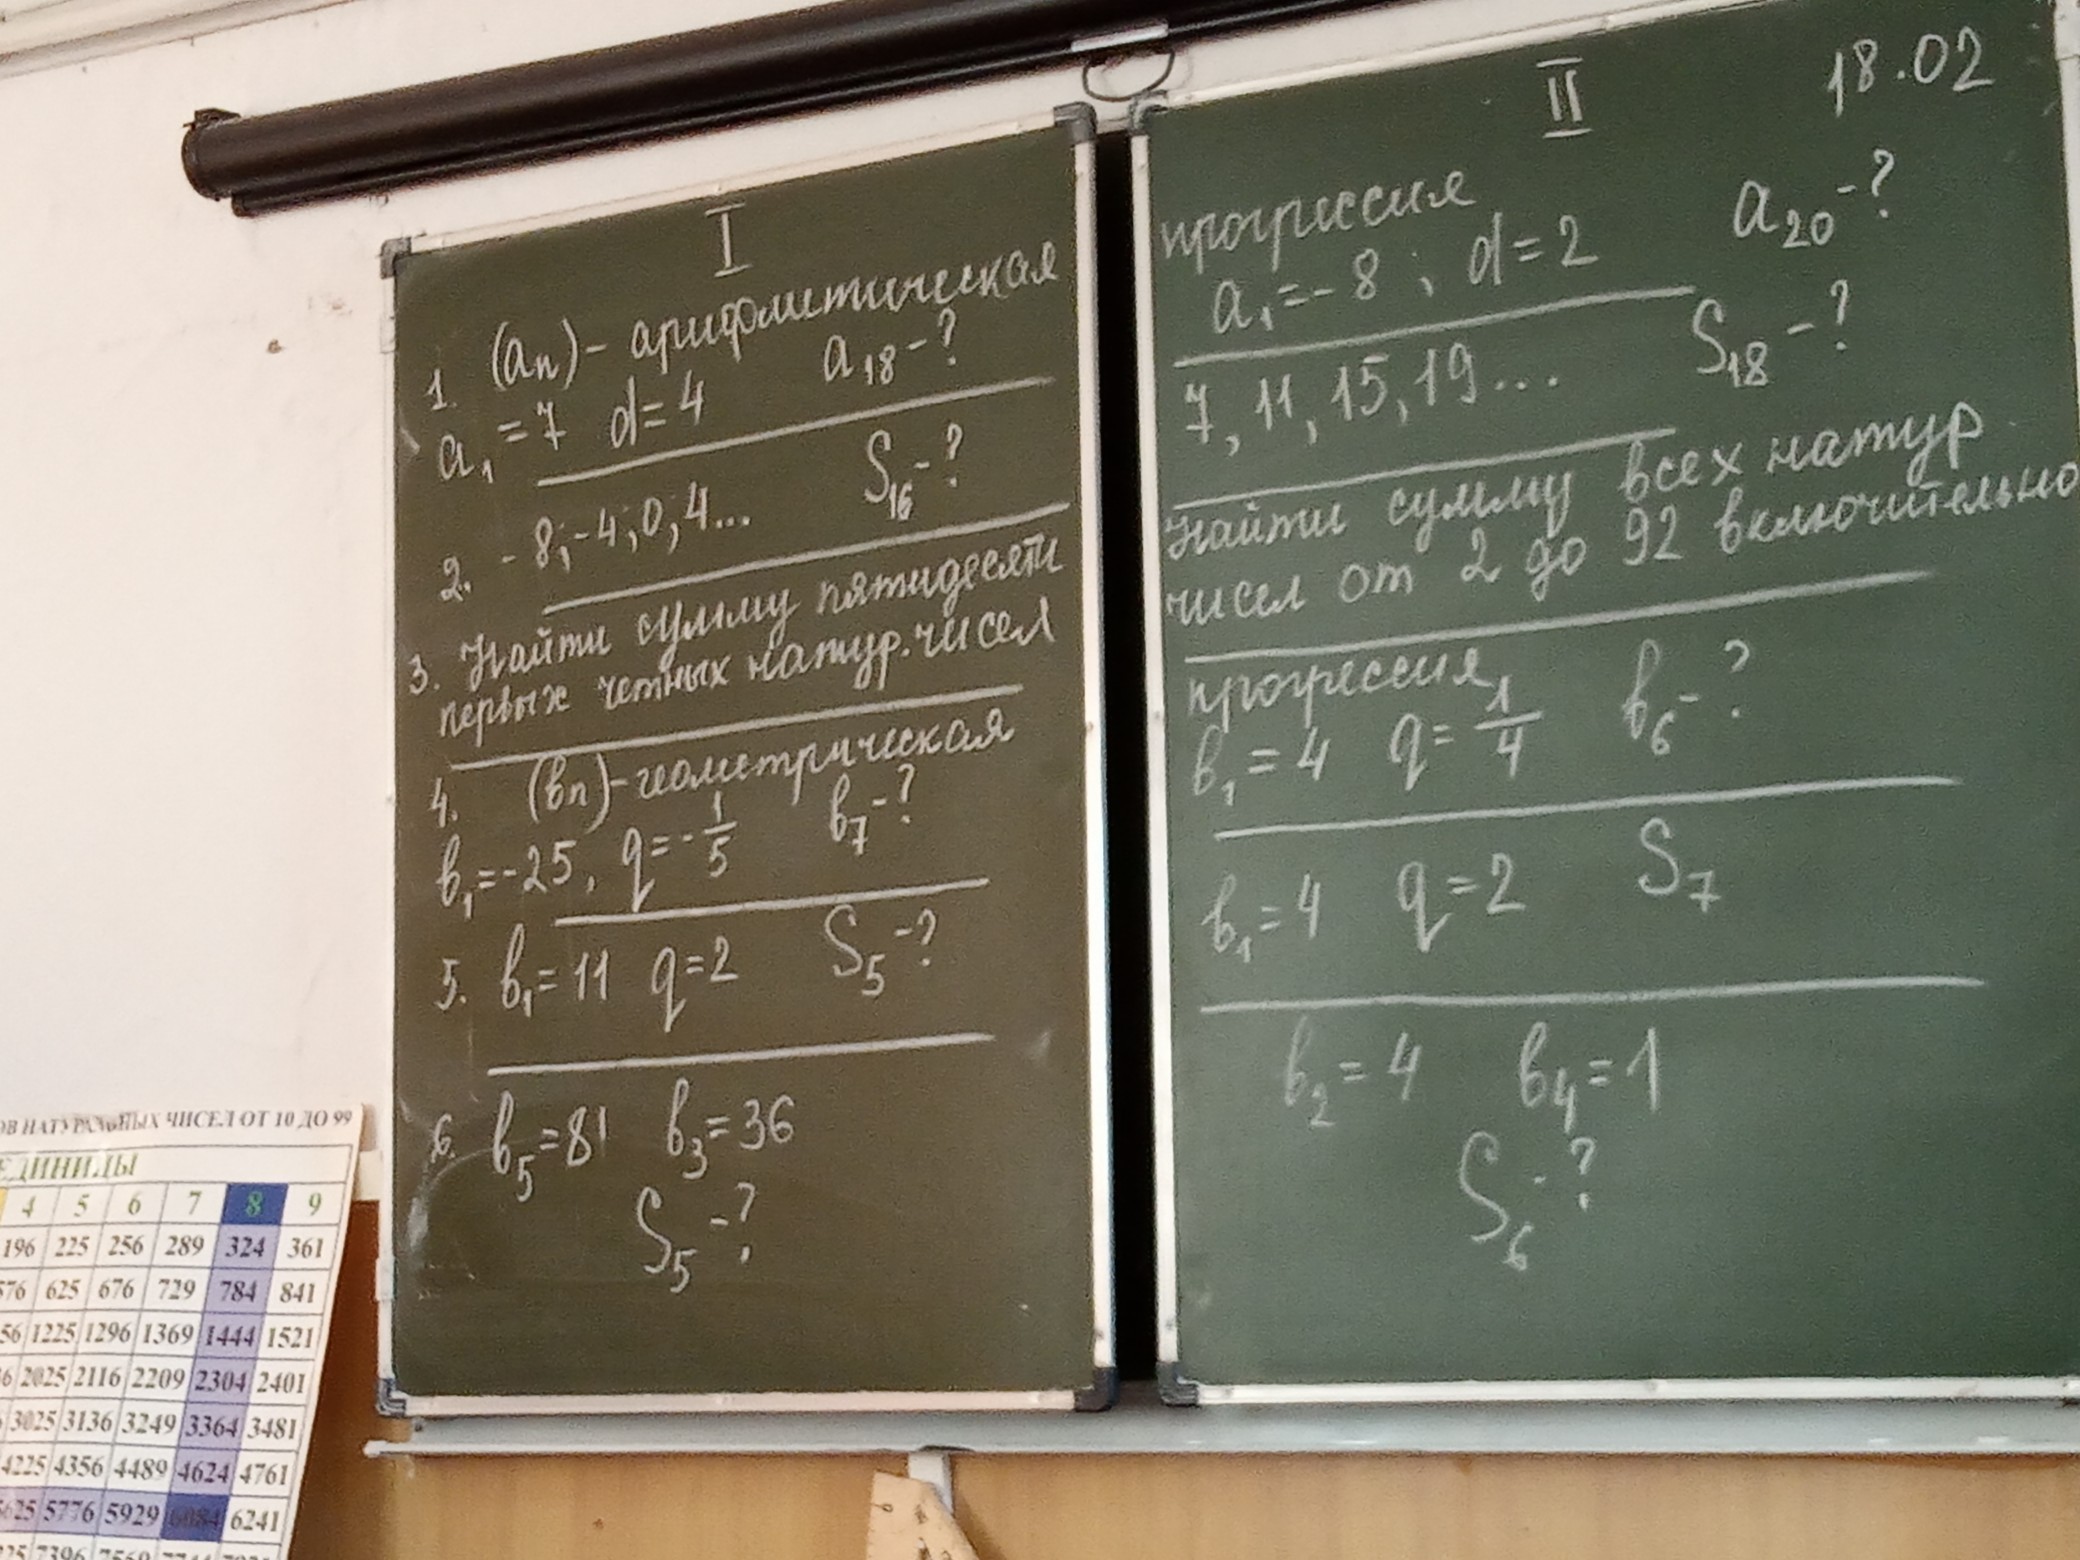 I
1. (an) - арифметическая
a1 = 7 d = 4 a18 - ?
2. -8; -4; 0; 4... S16 - ?
3. Найти сумму пятидесяти
первых четных натур. чисел
4. (bn) - геометрическая
b1 = -25, q = -1/5 b7 - ?
5. b1 = 11 q = 2 S5 - ?
6. b5 = 81 b3 = 36
S5 - ?
II 18.02
прогрессия
a1 = -8; d = 2 a20 - ?
7, 11, 15, 19... S18 - ?
Найти сумму всех натур
чисел от 2 до 92 включительно
прогрессия
b1 = 4 q = 1/4 b6 - ?
b1 = 4 q = 2 S7
b2 = 4 b4 = 1
S6 - ?
НАТУРАЛЬНЫХ ЧИСЕЛ ОТ 10 ДО 99
ЕДИНИЦЫ
4 5 6 7 8 9
196 225 256 289 324 361
576 625 676 729 784 841
1225 1296 1369 1444 1521
2025 2116 2209 2304 2401
3025 3136 3249 3364 3481
4225 4356 4489 4624 4761
5625 5776 5929 6084 6241
7396